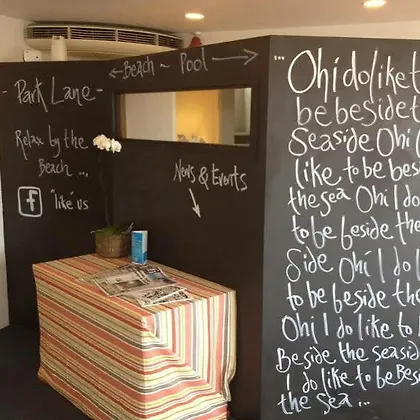 - Park Lane -
Relax by the
Beach ...
f "like" us
← Beach ~ Pool →
News & Events
... Oh i do like t
be beside t
Seaside Oh i
like to be bes
the sea Oh I do
to be beside the
Side Oh i I do
to be beside the
Oh i I do like to
Beside the seaside
I do like to be Besi
the sea ...